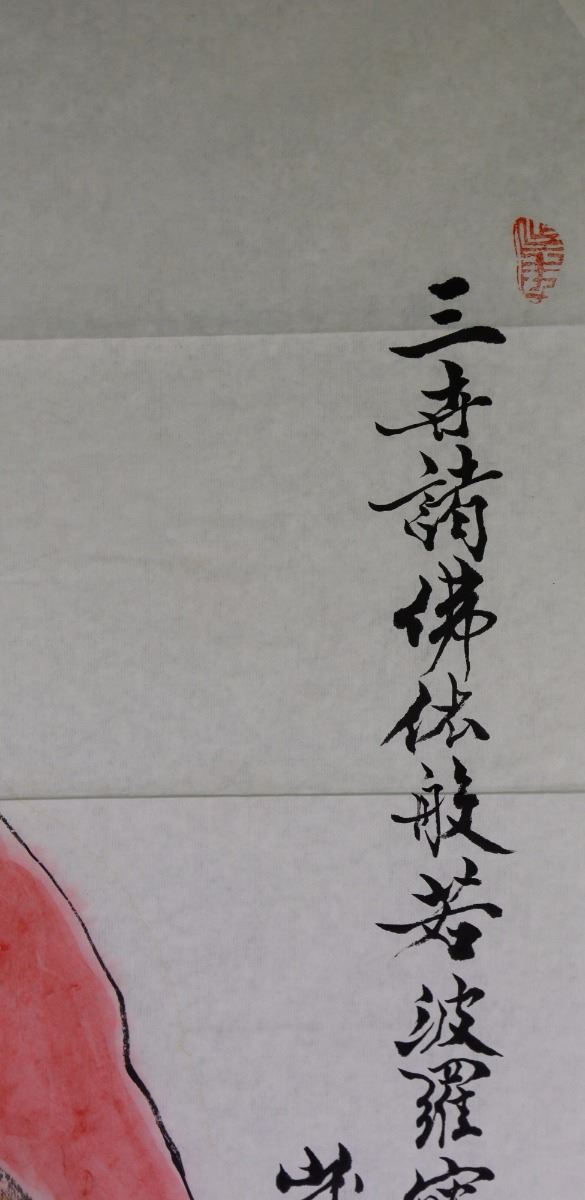 三世諸佛依般若波羅蜜